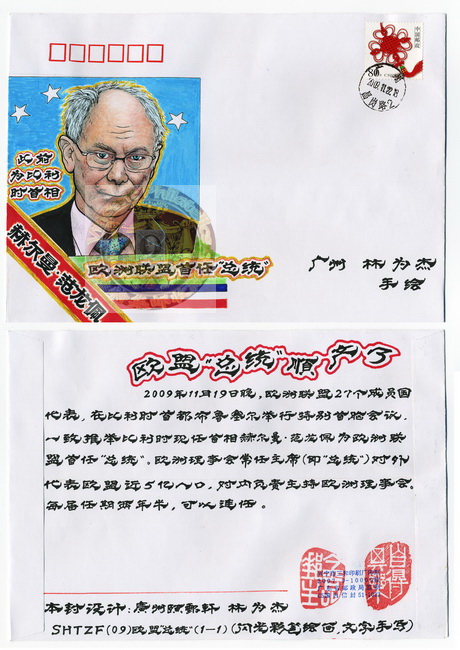 中国邮政
80
此前
为比利
时首相
赫尔曼·范龙佩
欧洲联盟首任“总统”
广州 林为杰
手绘
欧盟“总统”順产了
2009年11月19日晚,欧洲联盟27个成员国
代表,在比利时首都布鲁塞尔举行特别首脑会议,
一致推举比利时现任首相赫尔曼·范龙佩为欧洲联
盟首任“总统”。欧洲理事会常任主席(即“总统”)对外
代表欧盟近5亿人口,对内负责主持欧洲理事会。
每届任期两年半,可以连任。
本封设计:廣州 林为杰
SHTZF(09)欧盟“总统”(1-1)(闪光彩笔绘画,文字手写)